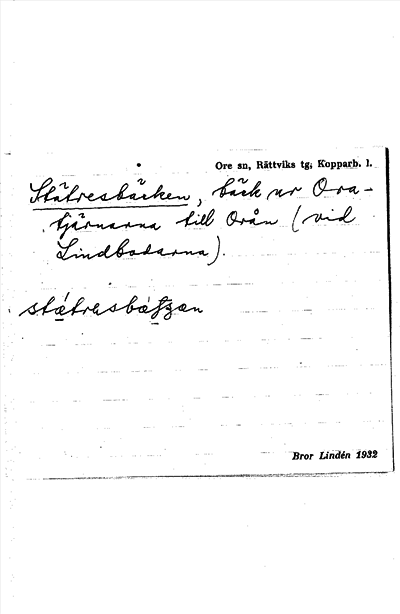 Ore sn, Rättviks tg, Kopparb. l.
Stätresbäcken, bäck ur Ora-
tjärnarna till Orån (vid
Lindbodarna).
Bror Lindén 1932